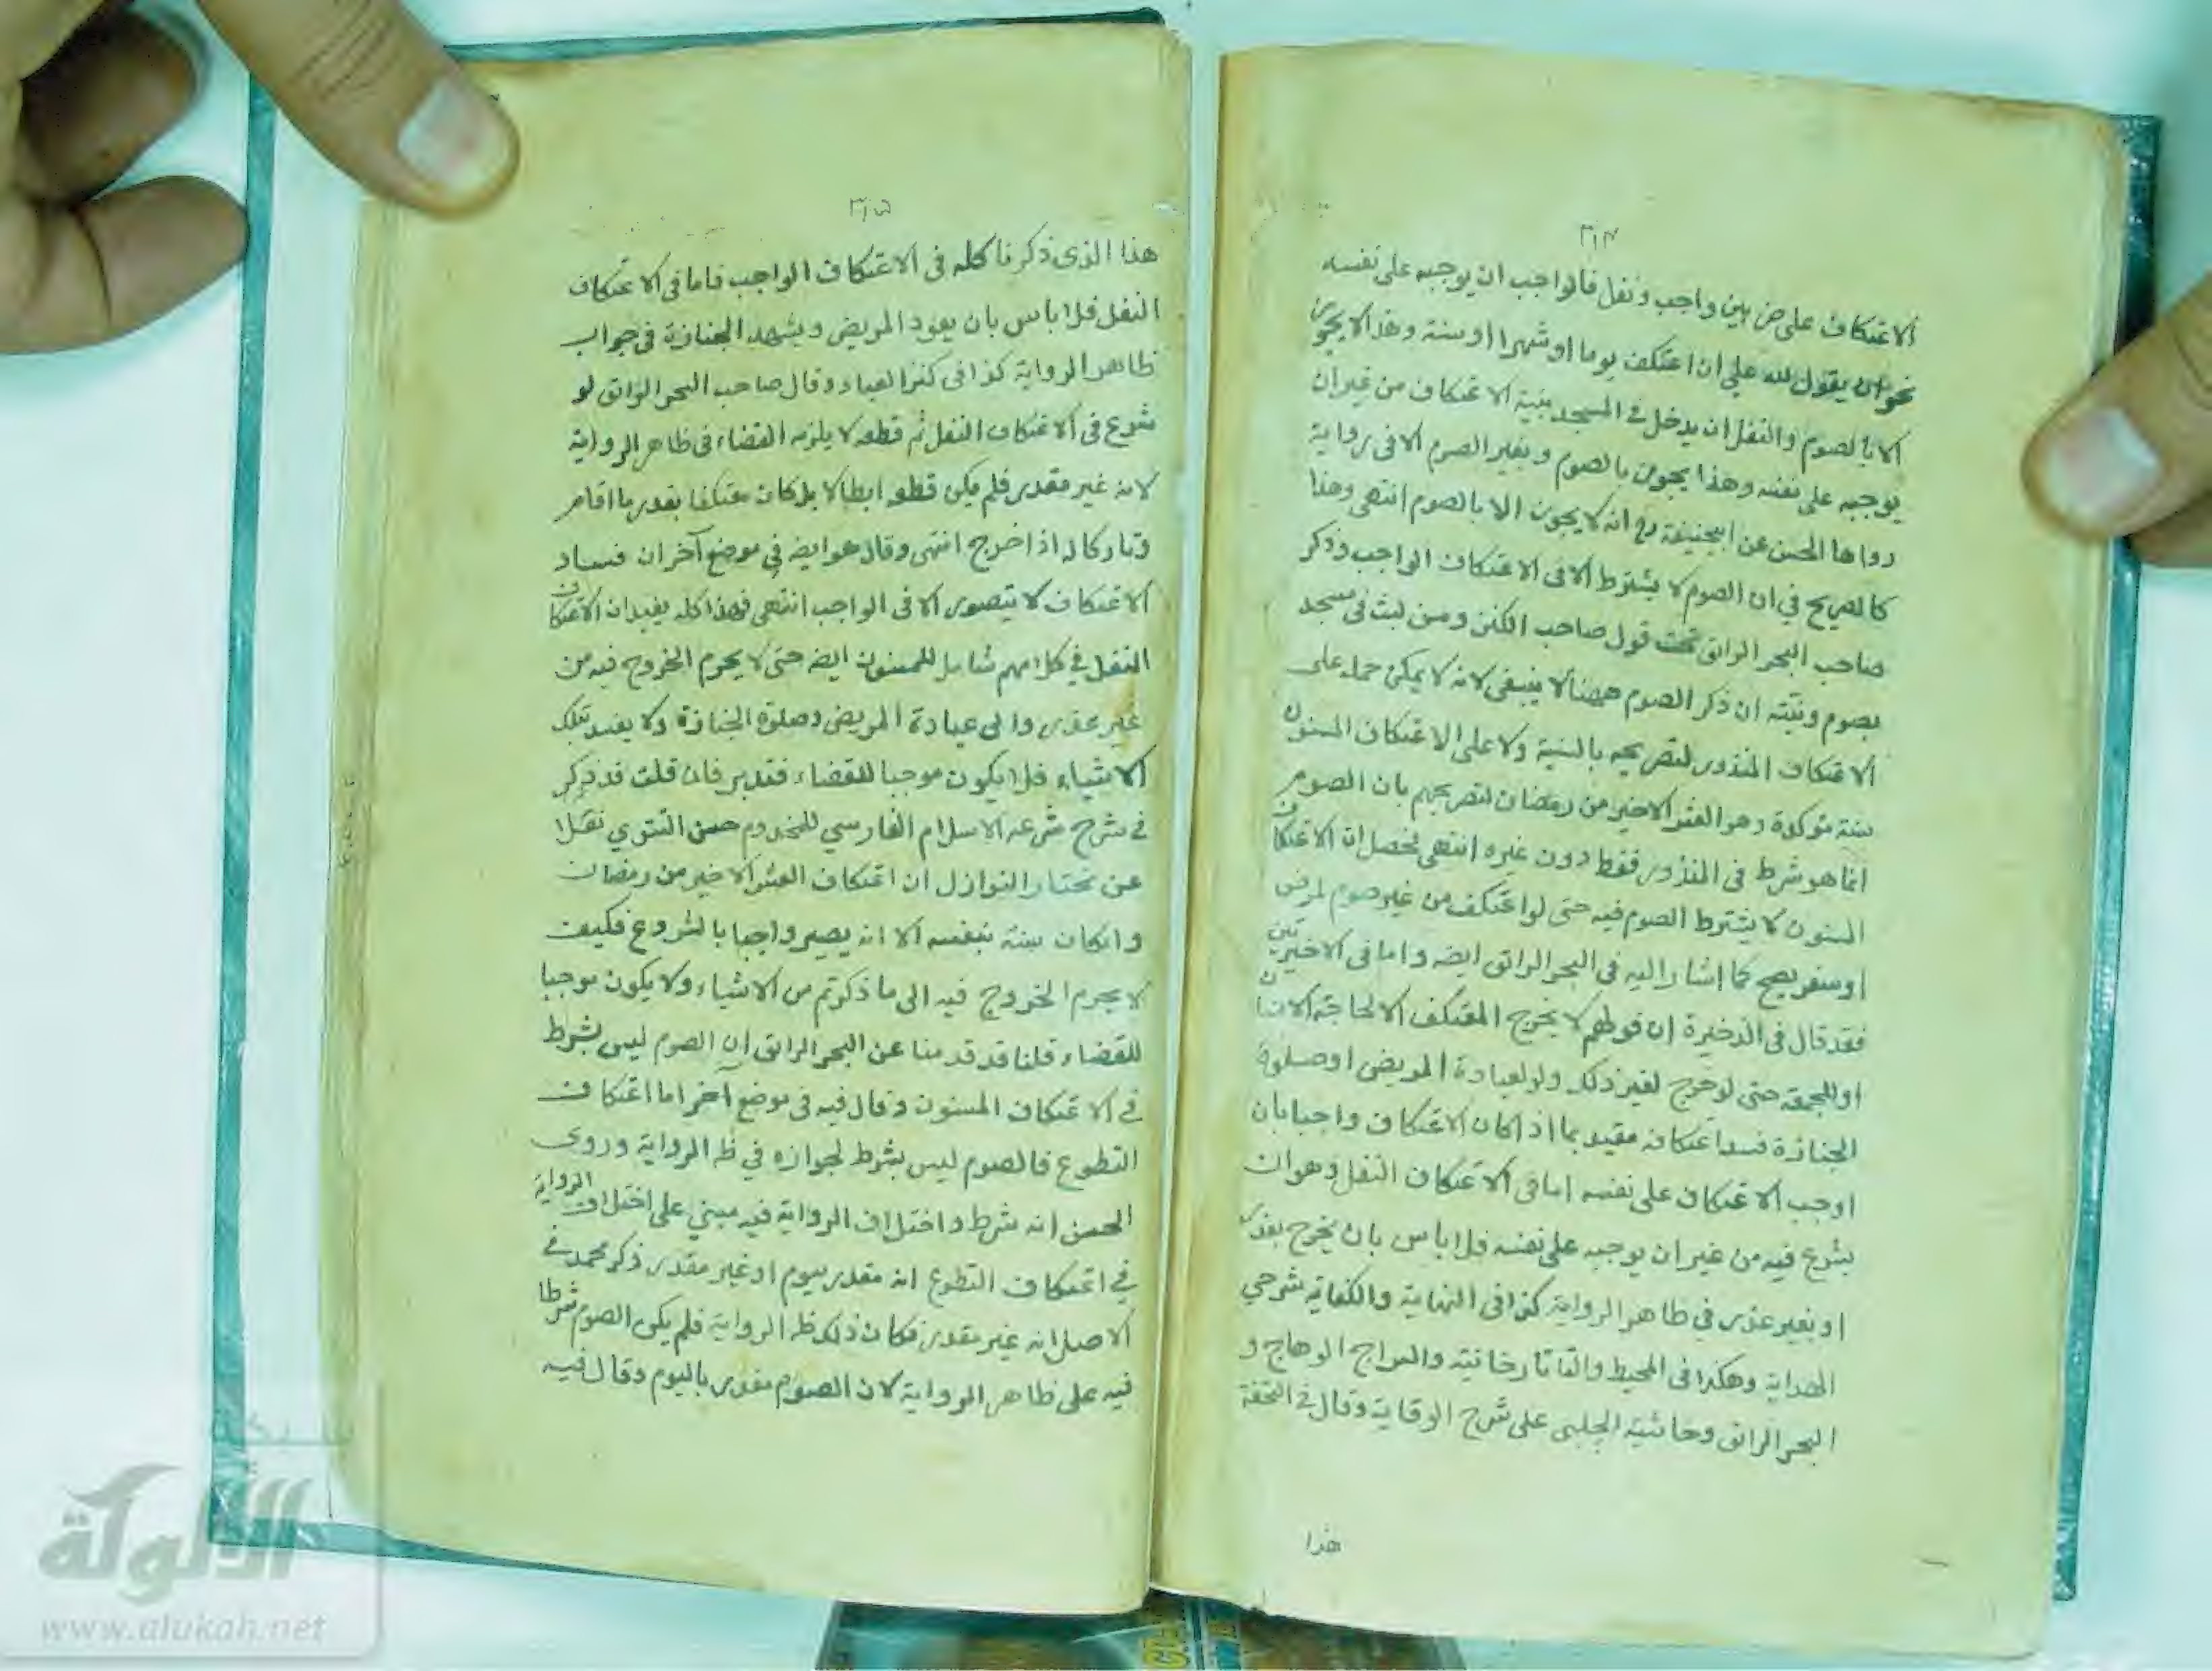 ٣١٤
الاعتكاف على ضربين واجب ونفل فالواجب ان يوجبه على نفسه
نحو ان يقول لله علي ان اعتكف يوما او شهرا او سنة وهذا لا يجوز
الا بالصوم والنفل ان يدخل في المسجد بنية الاعتكاف من غير ان
يوجبه على نفسه وهذا يجوز بالصوم وبغير الصوم الا فى رواية
رواها الحسن عن ابيحنيفة رح انه لا يجوز الا بالصوم انتهى وهذا
كالصريح في ان الصوم لا يشترط الا فى الاعتكاف الواجب وذكر
صاحب البحر الرائق تحت قول صاحب الكنز وسن لبث فى مسجد
بصوم ونيته ان ذكر الصوم ههنا لا ينبغى لانه لا يمكن حمله على
الاعتكاف المنذور لتصريحه بالسنية ولا على الاعتكاف المسنون
سنة مؤكدة وهو العشر الاخير من رمضان لتصريحهم بان الصوم
انما هو شرط فى المنذور فقط دون غيره انتهى فحصل ان الاعتكاف
المسنون لا يشترط الصوم فيه حتى لو اعتكف من غير صوم لمرض
او سفر يصح كما اشار اليه فى البحر الرائق ايضه واما فى الاخيرتين
فقد قال فى الذخيرة ان قولهم لا يخرج المعتكف الا لحاجة الانسان
او للجمعة حتى لو خرج لغير ذلك ولو لعيادة المريض او صلوة
الجنازة فسد اعتكافه مقيد بما اذا كان الاعتكاف واجبا بان
اوجب الاعتكاف على نفسه اما فى الاعتكاف النفل وهو ان
يشرع فيه من غير ان يوجبه على نفسه فلا باس بان يخرج بعذر
او بغير عذر في ظاهر الرواية كذا فى النهاية والكفاية شرحي
الهداية وهكذا فى المحيط والتاتارخانية والسراج الوهاج و
البحر الرائق وحاشية الچلبى على شرح الوقاية وقال فى التحفة
هذا
٣١٥
هذا الذى ذكرنا كله فى الاعتكاف الواجب فاما فى الاعتكاف
النفل فلا باس بان يعود المريض ويشهد الجنازة فى جواب
ظاهر الرواية كذا فى كنز العباد وقال صاحب البحر الرائق لو
شرع فى الاعتكاف النفل ثم قطعه لا يلزمه القضاء فى ظاهر الرواية
لانه غير مقدر فلم يكن قطعه ابطالا بل كان معتكفا بقدر ما اقام
وتاركا له اذا خرج انتهى وقال هو ايضه في موضع آخر ان فساد
الاعتكاف لا يتصور الا فى الواجب انتهى فهذا كله يفيد ان الاعتكاف
النفل في كلامهم شامل للمسنون ايضه حتى لا يحرم الخروج فيه من
غير عذر والى عيادة المريض وصلوة الجنازة ولا يفسد بتلك
الاشياء فلا يكون موجبا للقضاء فتدبر فان قلت قد ذكر
في شرح شرعة الاسلام الفارسي للمخدوم حسن التتوي نقلا
عن مختار النوازل ان اعتكاف العشر الاخير من رمضان
وانكان سنة بنفسه الا انه يصير واجبا بالشروع فكيف
لا يحرم الخروج فيه الى ما ذكرتم من الاشياء ولا يكون موجبا
للقضاء قلنا قد قدمنا عن البحر الرائق ان الصوم ليس بشرط
في الاعتكاف المسنون وقال فيه فى موضع آخر اما اعتكاف
التطوع فالصوم ليس بشرط لجوازه في ظه الرواية وروى
الحسن انه شرط واختلاف الرواية فيه مبني على اختلاف الرواية
في اعتكاف التطوع انه مقدر بيوم او غير مقدر ذكر محمد في
الاصل انه غير مقدر فكان ذلك ظه الرواية فلم يكن الصوم شرطا
فيه على ظاهر الرواية لان الصوم مقدر باليوم وقال فيه
شبكة
الألوكة
www.alukah.net